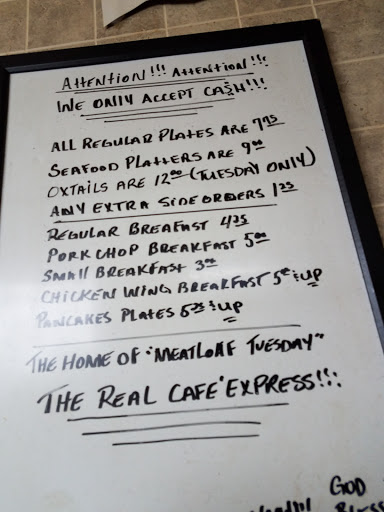 ATTENTION!!! ATTENTION!!!
WE ONLY ACCEPT CA$H!!!
ALL REGULAR PLATES ARE 7.75
SEAFOOD PLATTERS ARE 9.00
OXTAILS ARE 12.00 (TUESDAY ONLY)
ANY EXTRA SIDE ORDERS 1.25
REGULAR BREAFAST 4.25
PORK CHOP BREAKFAST 5.00
SMALL BREAKFAST 3.00
CHICKEN WING BREAKFAST 5 & UP
PANCAKES PLATES & UP
THE HOME OF "MEATLOAF TUESDAY"
THE REAL CAFE' EXPRESS!!!
GOD
BLESS